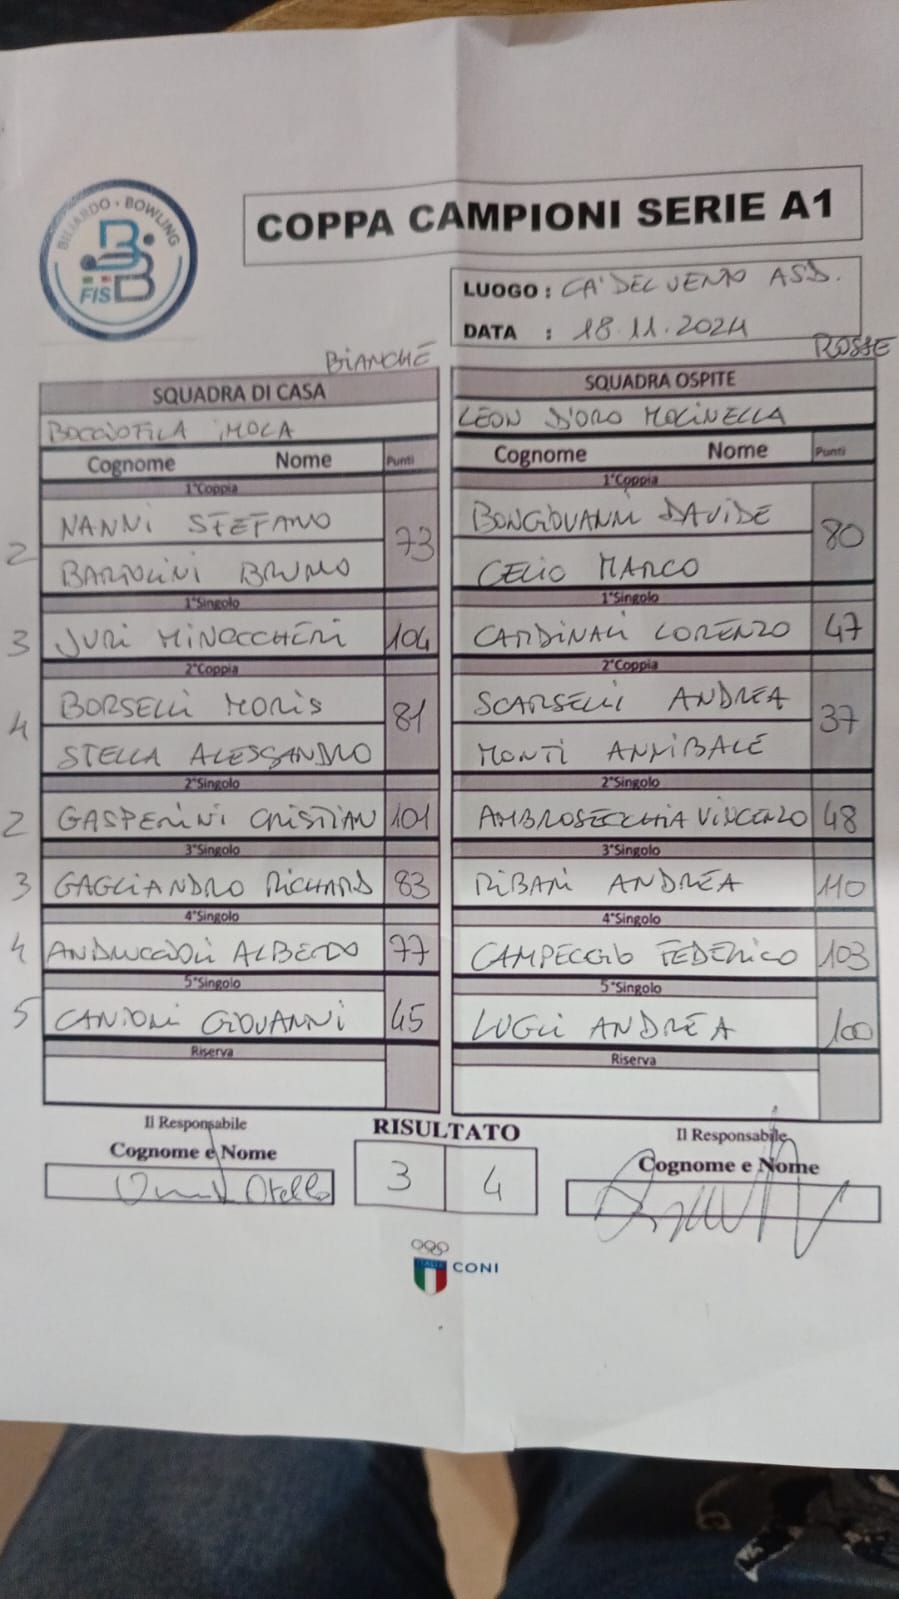 BILIARDO - BOWLING
FISBB
COPPA CAMPIONI SERIE A1
LUOGO : CA' DEL VENTO ASD.
DATA : 18.11.2024
BIANCHE
ROSSE
SQUADRA DI CASA
BOCCIOFILA IMOLA
Cognome Nome Punti
1°Coppia
2 NANNI STEFANO 73
BARTOLINI BRUNO
1°Singolo
3 JURI MINOCCHERI 104
2°Coppia
4 BORSELLI MORIS 81
STELLA ALESSANDRO
2°Singolo
2 GASPERINI CRISTIAN 101
3°Singolo
3 GAGLIANDRO RICHARD 83
4°Singolo
4 ANDRUCCIOLI ALBERTO 77
5°Singolo
5 CANTONI GIOVANNI 45
Riserva
SQUADRA OSPITE
LEON D'ORO MOLINELLA
Cognome Nome Punti
1°Coppia
BONGIOVANNI DAVIDE 80
CELIO MARCO
1°Singolo
CARDINALI LORENZO 47
2°Coppia
SCARSELLI ANDREA 37
MONTI ANNIBALE
2°Singolo
AMBROSECCHIA VINCENZO 48
3°Singolo
RIBANI ANDREA 110
4°Singolo
CAMPEGGIO FEDERICO 103
5°Singolo
LUGLI ANDREA 100
Riserva
Il Responsabile
Cognome e Nome
Otello
RISULTATO
3 4
Il Responsabile
Cognome e Nome
ITALIA
CONI